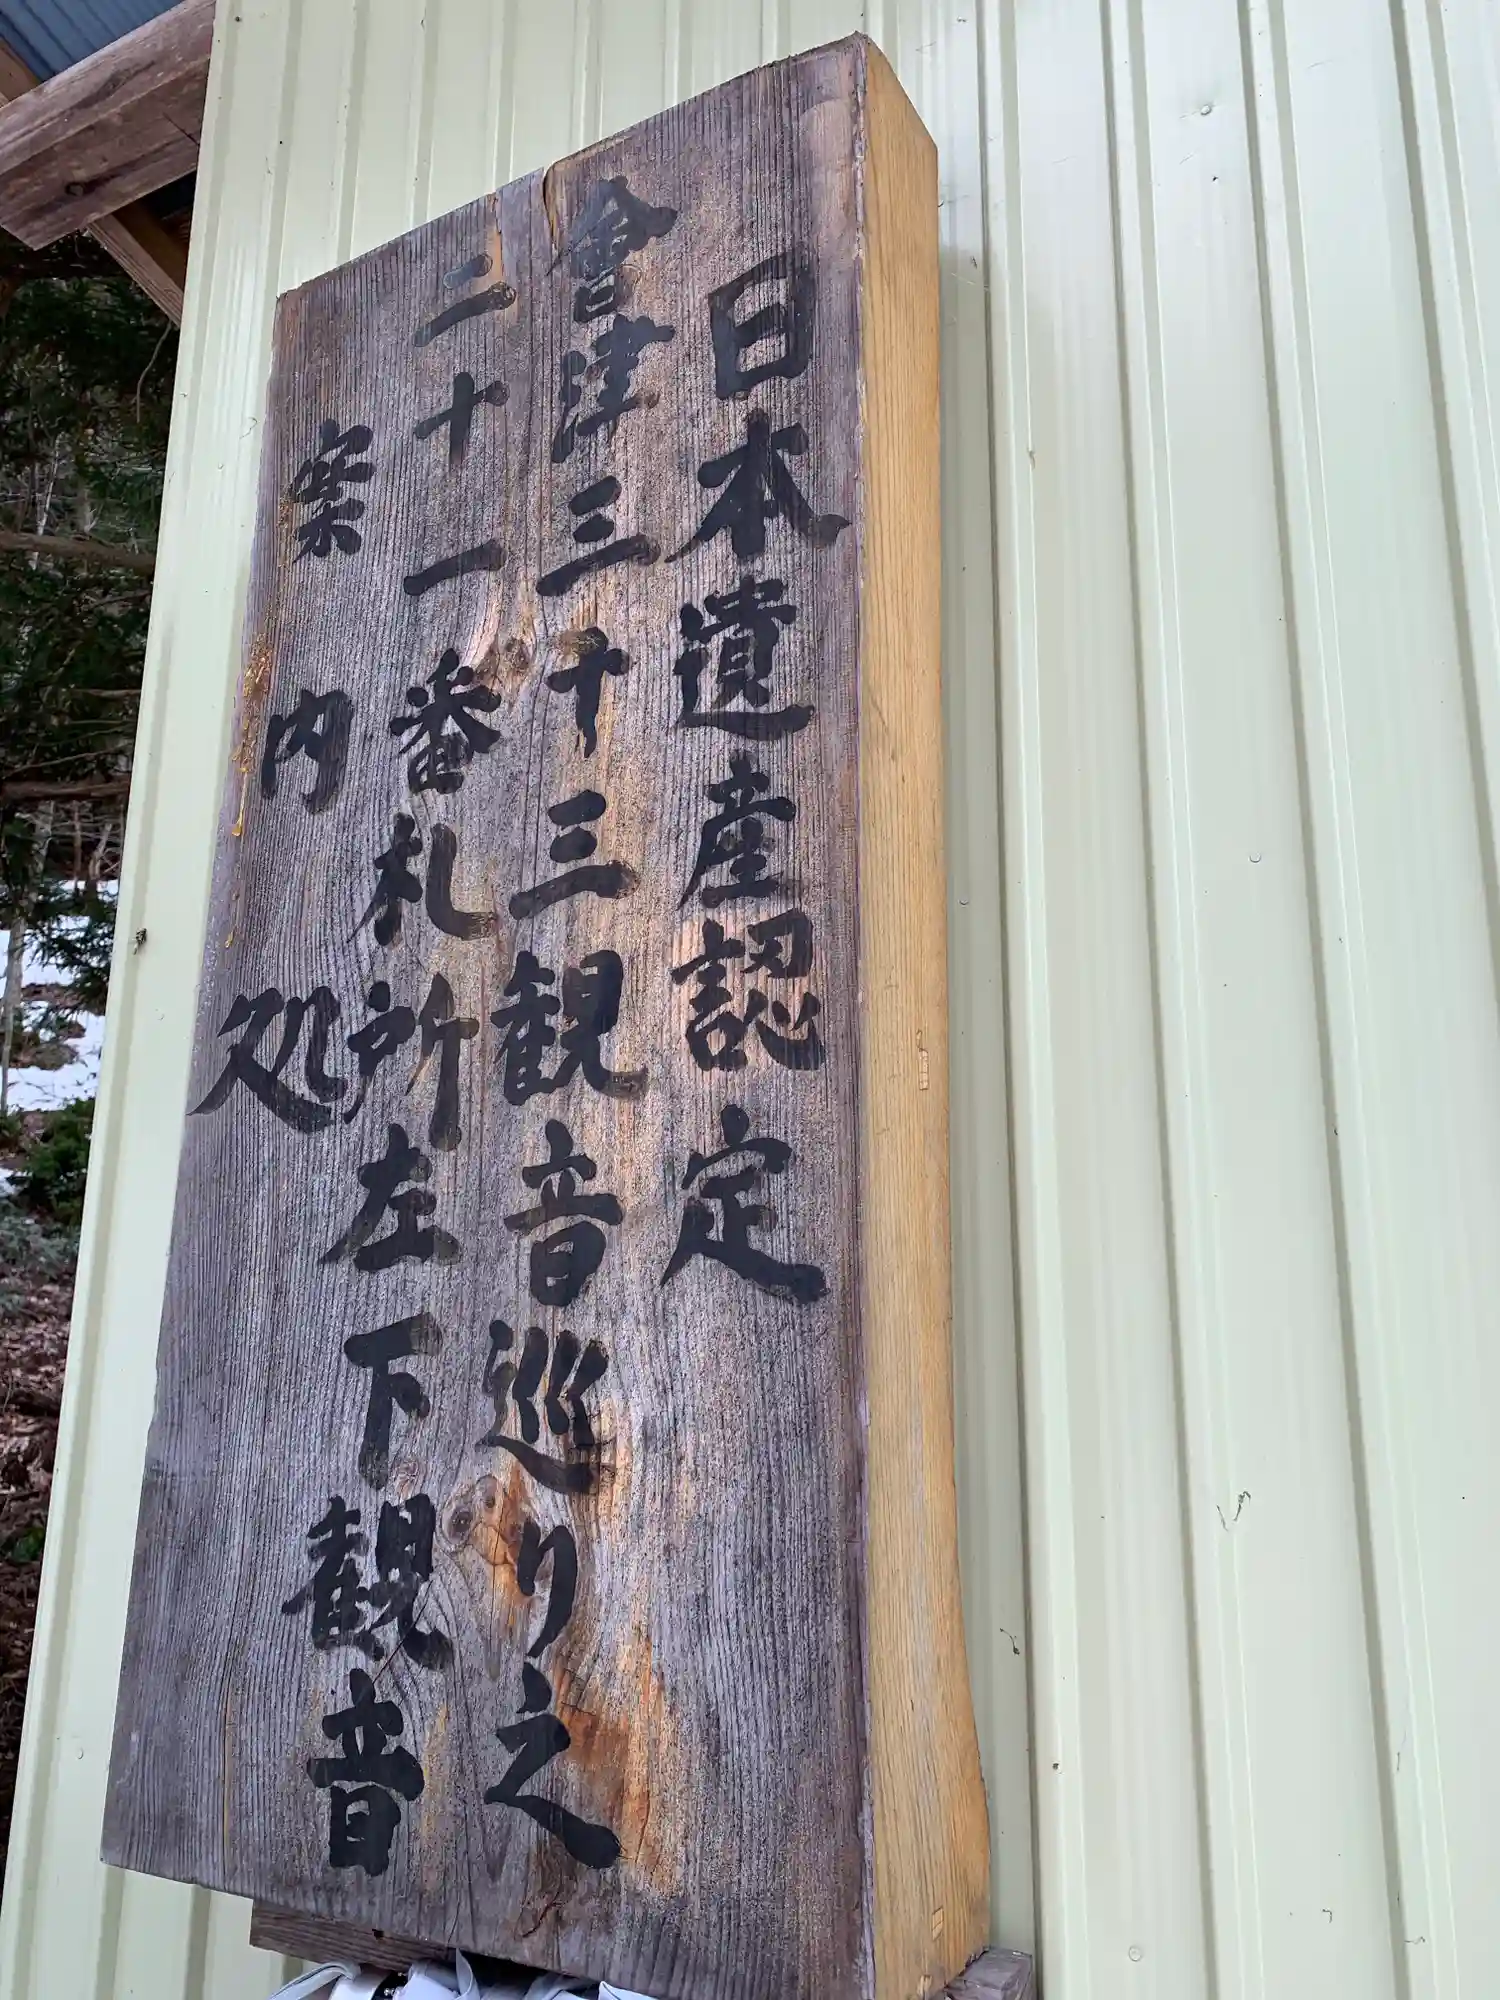 日本遺産認定
會津三十三観音巡り之
二十一番札所左下観音
案内処